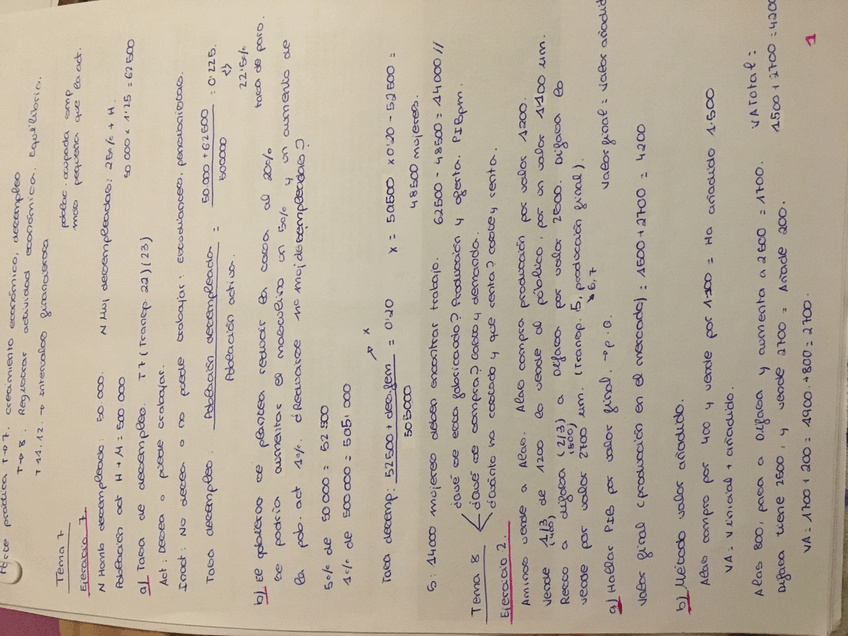 práctica T→7. crecimiento económico, desempleo
T→8: Registrar actividad económica. Equilibrio.
T 11, 12. → intervalos financieros
Tema 7
Ejercicio 7.
poblac. ocupada
más pequeña que la act.
Nº Homb desempleado: 50 000. Nº Muj desempleadas: 25% + H.
Población act H + M = 500 000
50 000 x 1'25 = 62 500
a) Tasa de desempleo. T7 (Transp 22) (23)
Act: Desea o puede trabajar.
Inact: No desea o no puede trabajar: Estudiantes, pensionistas.
Tasa desempleo: Población desempleada / Población activa. = 50.000 + 62500 / 500000 = 0'225.
22'5%
tasa de paro.
b) El gobierno se plantea reducir la tasa al 20%
se podría aumentar el masculino un 5% y un aumento de
la pob. act 1%. ¿Reducirse no muj desempleadas?
5% de 50 000 = 52 500
1% de 500 000 = 505 000
Tasa desemp: 52 500 + des. fem / 505000 = 0'20
x
x = 505000 x 0'20 - 52 500 =
48 500 mujeres.
S: 14 000 mujeres deben encontrar trabajo. 62500 - 48500 = 14 000 //
Tema 8
¿Qué se está fabricando? Producción y oferta. PIBpm.
¿Qué se compra? Gasto y demanda.
¿Cuánto ha costado y que renta? Coste y renta.
Ejercicio 2.
vende a Alas. Alas compra producción por valor 1200.
Vende 1/3 de 1200 lo vende al público, por un valor 1500 um.
(400)
Resto a Difasa (2/3) a Difasa por valor 2500. Difasa lo
(800)
vende por valor 2700 um. (Transp. 5, producción final).
5, 7
a) Hallar PIB por valor final. → p. a.
Valor final = valor añadido
Valor final (producción en el mercado) = 1500 + 2700 = 4200
b) Método valor añadido.
Alas compra por 400 y vende por = Ha añadido
VA = V inicial + añadido.
Alas 800, pasa a Difasa y aumenta a 2500 = 1700.
Difasa tiene 2500, y vende 2700 = Añade 200.
VA Total =
1500 + 2700 = 4200
VA = 1700 + 200 = 1900 + 800 = 2700.
1